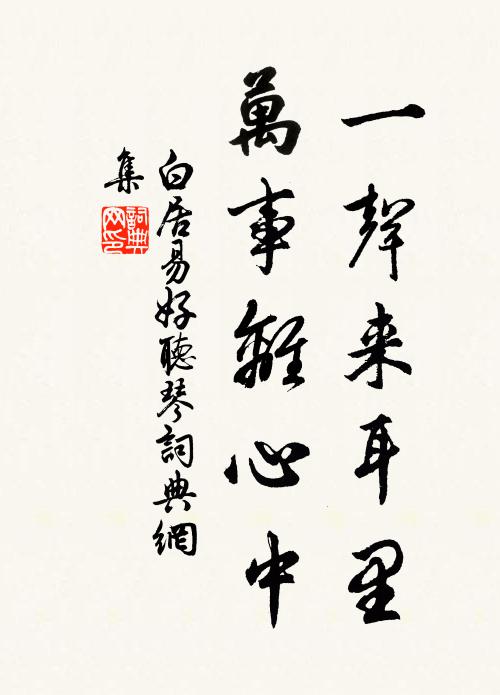 一聲来耳里
萬事離心中
白居易好聽琴詞典網
集
詞典
网印